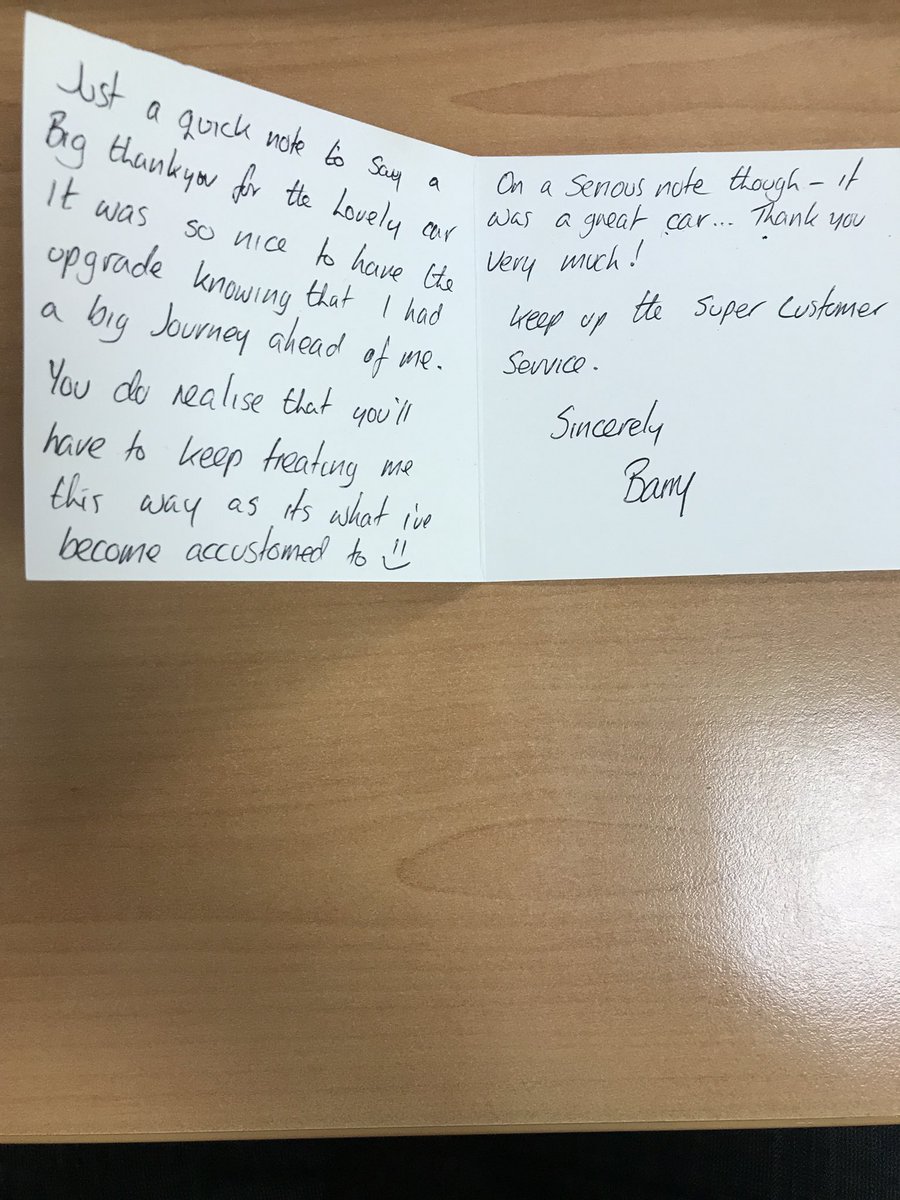 Just a quick note to say a
Big thankyou for the Lovely car
It was so nice to have the
upgrade knowing that I had
a big Journey ahead of me.
You do realise that you'll
have to keep treating me
this way as its what i've
become accustomed to
On a serious note though - it
was a great car... Thank you
very much!
keep up the super customer
service.
Sincerely
Barry